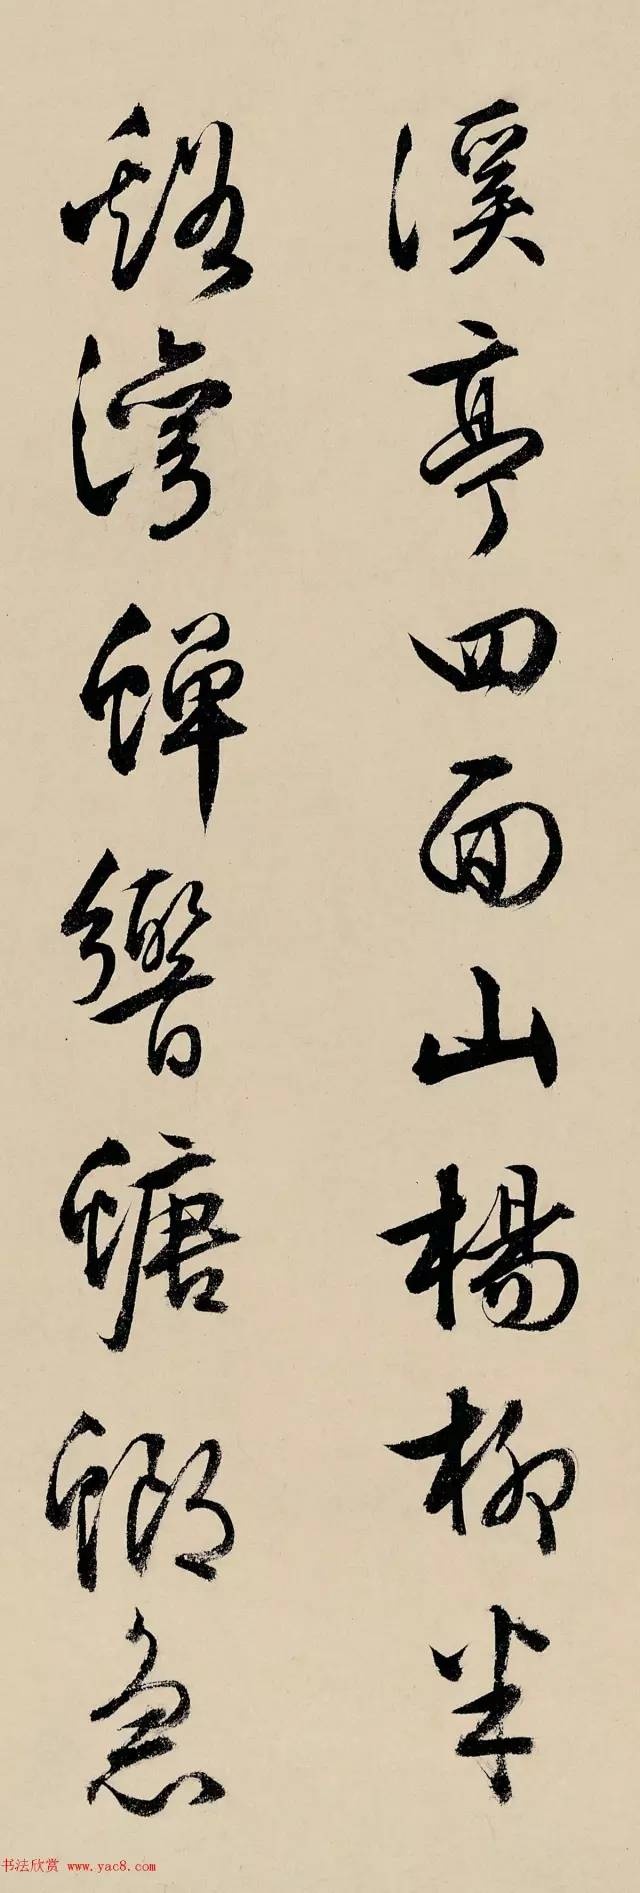 溪亭四面山楊柳半
谿灣蟬響螗螂急
书法欣赏 www.yac8.com